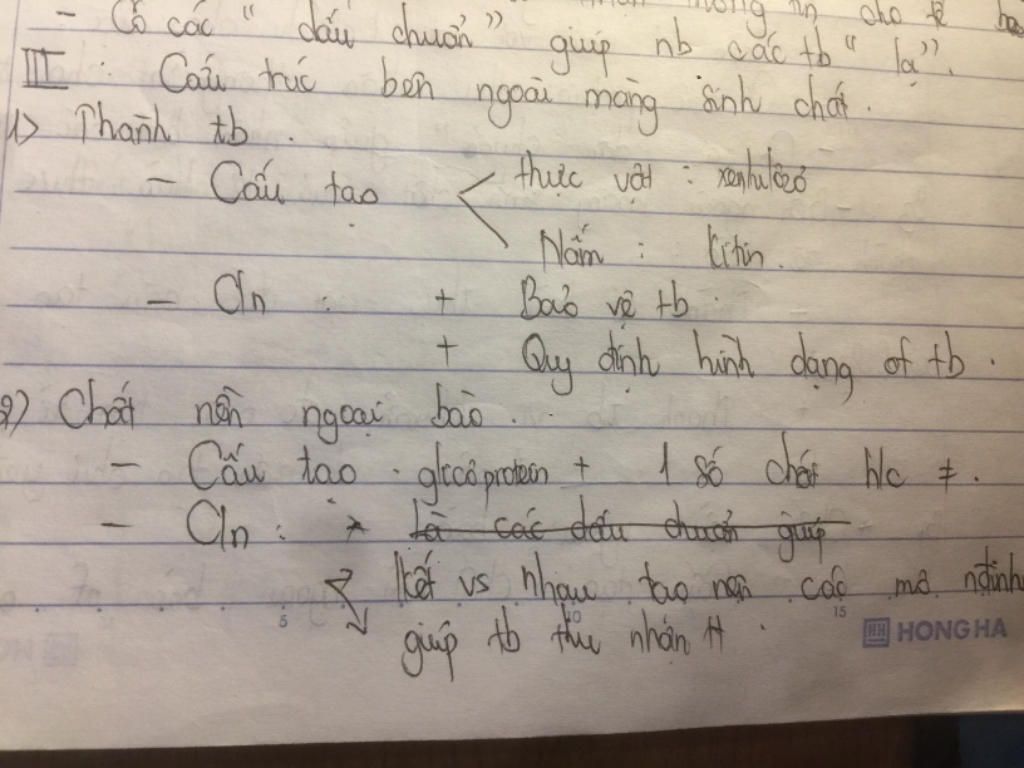 mong tn cho tế bào
- Có các “dấu chuẩn” giúp nb các tb “lạ”.
III. Cấu trúc bên ngoài màng sinh chất.
1> Thành tb.
- Cấu tạo < thực vật : xenlulôzơ
Nấm : kitin.
- Cn : + Bảo vệ tb.
+ Quy định hình dạng of tb.
2) Chất nền ngoại bào.
- Cấu tạo . glicôprotein + 1 số chất h/c ≠.
- Cn : * Là các dấu chuẩn giúp
lkết vs nhau tạo nên các mô nđịnh
giúp tb thu nhận tt.
5 10 15 HH HONG HA